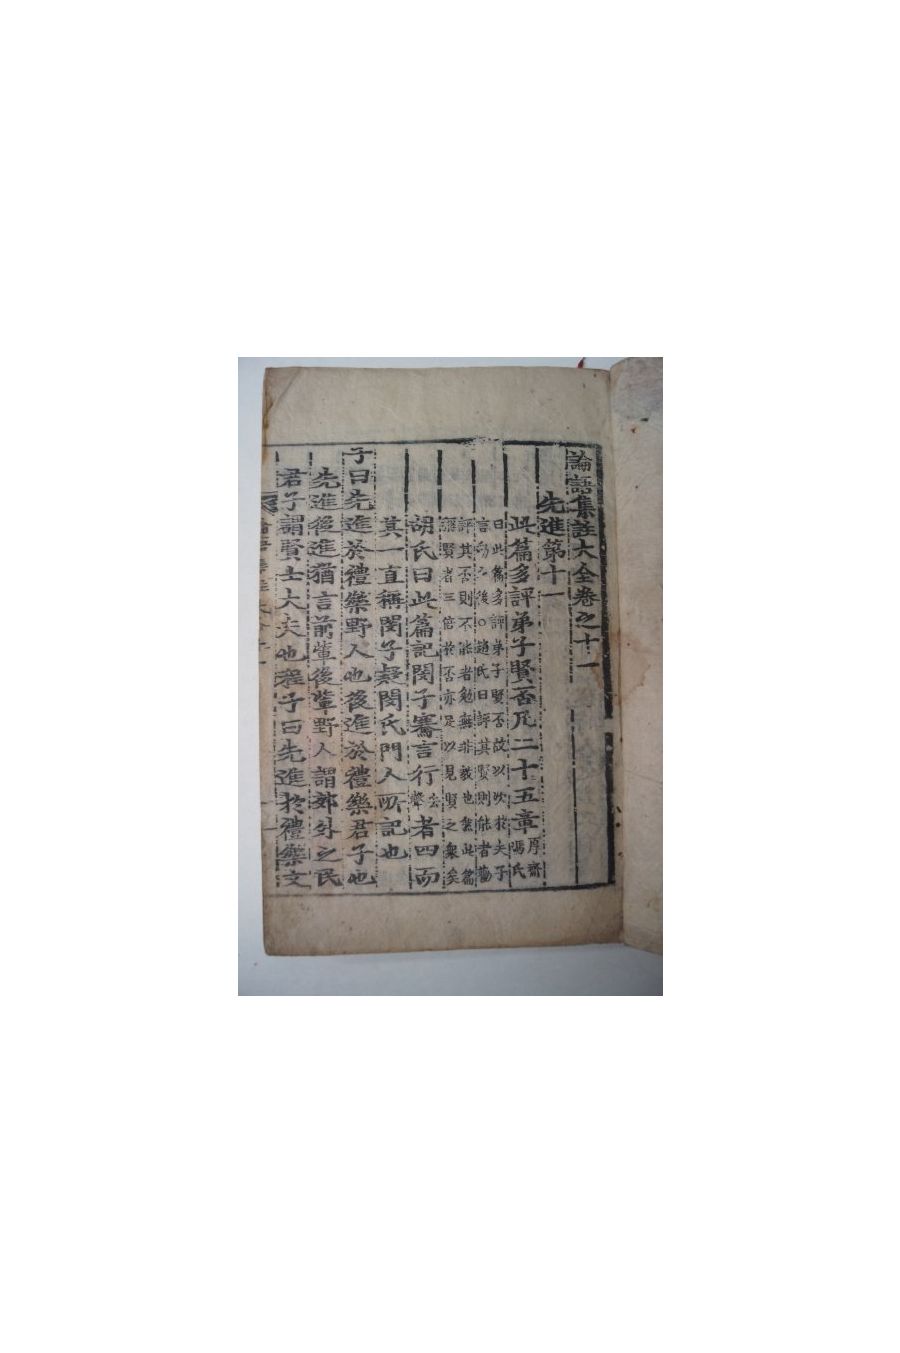 論語集註大全卷之十一
先進第十一
此篇多評弟子賢否凡二十五章厚齋馮氏
曰此篇多評弟子賢否故以次於夫子
言之後○趙氏曰評其賢則能者勸
評其否則不能者勉無非敎也然此篇
賢者三倍於否亦足以見賢之衆矣
胡氏曰此篇記閔子騫言行去聲者四而
其一直稱閔子疑閔氏門人所記也
子曰先進於禮樂野人也後進於禮樂君子也
先進後進猶言前輩後輩野人謂郊外之民
君子謂賢士大夫也程子曰先進於禮樂文